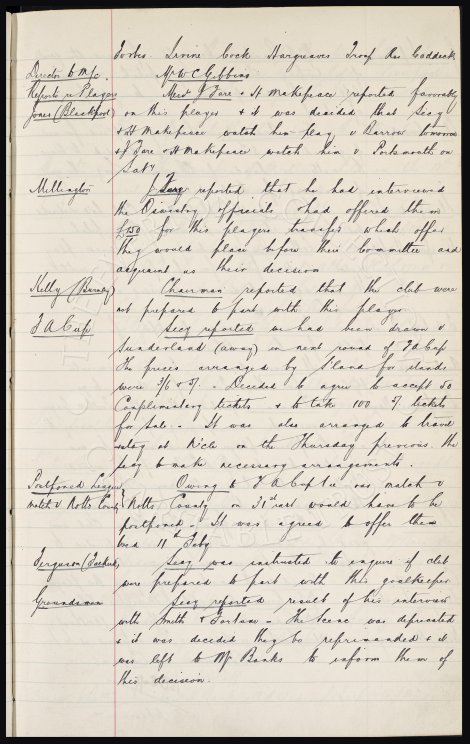 Forbes Irvine Cook Hargreaves Troup
Director to M/c. Mr W C Gibbins
Reports re Players Messrs J Fare + H Makepeace reported favorably
Jones (Blackpool) on this player + it was decided that Secy
+ H Makepeace watch him play v Barrow tomorrow
+ J Fare + H Makepeace watch him v Portsmouth on
Saty
Millington reported that he had interviewed
the Oswestry officials + had offered them
£150 for this players transfer which offer
they would place before their Committee and
acquaint us their decision
Kelly (Burnley) Chairman reported that the club were
not prepared to part with this player
F A Cup Secy reported we had been drawn v
Sunderland (away) in next round of F A Cup
The prices arranged by S'land for stands
were 3/6 + 5/. - Decided to agree to accept 50
Complimentary tickets + to take 100 5/ tickets
for sale. - It was also arranged to travel
+ stay at N'cle on the Thursday previous. The
secy to make necessary arrangements.
Postponed League Owing to F A Cup tie our match v
match v Notts County Notts County on 31st inst would have to be
postponed - It was agreed to offer them
Wed 11th Feby
Ferguson Secy was instructed to enquire if club
were prepared to part with this goalkeeper
Groundsman Secy reported result of his interview
with Smith + - The scene was deprecated
+ it was decided they be reprimanded + it
was left to Mr Banks to inform them of
this decision.